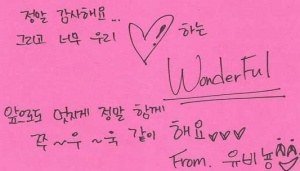 정말 감사해요...
그리고 너무 우리 ♡ 하는
WonderFul
앞으로도 멋지게 정말 함께
쭈~우~욱 같이 해요♡♡♡
From. 유비뇽